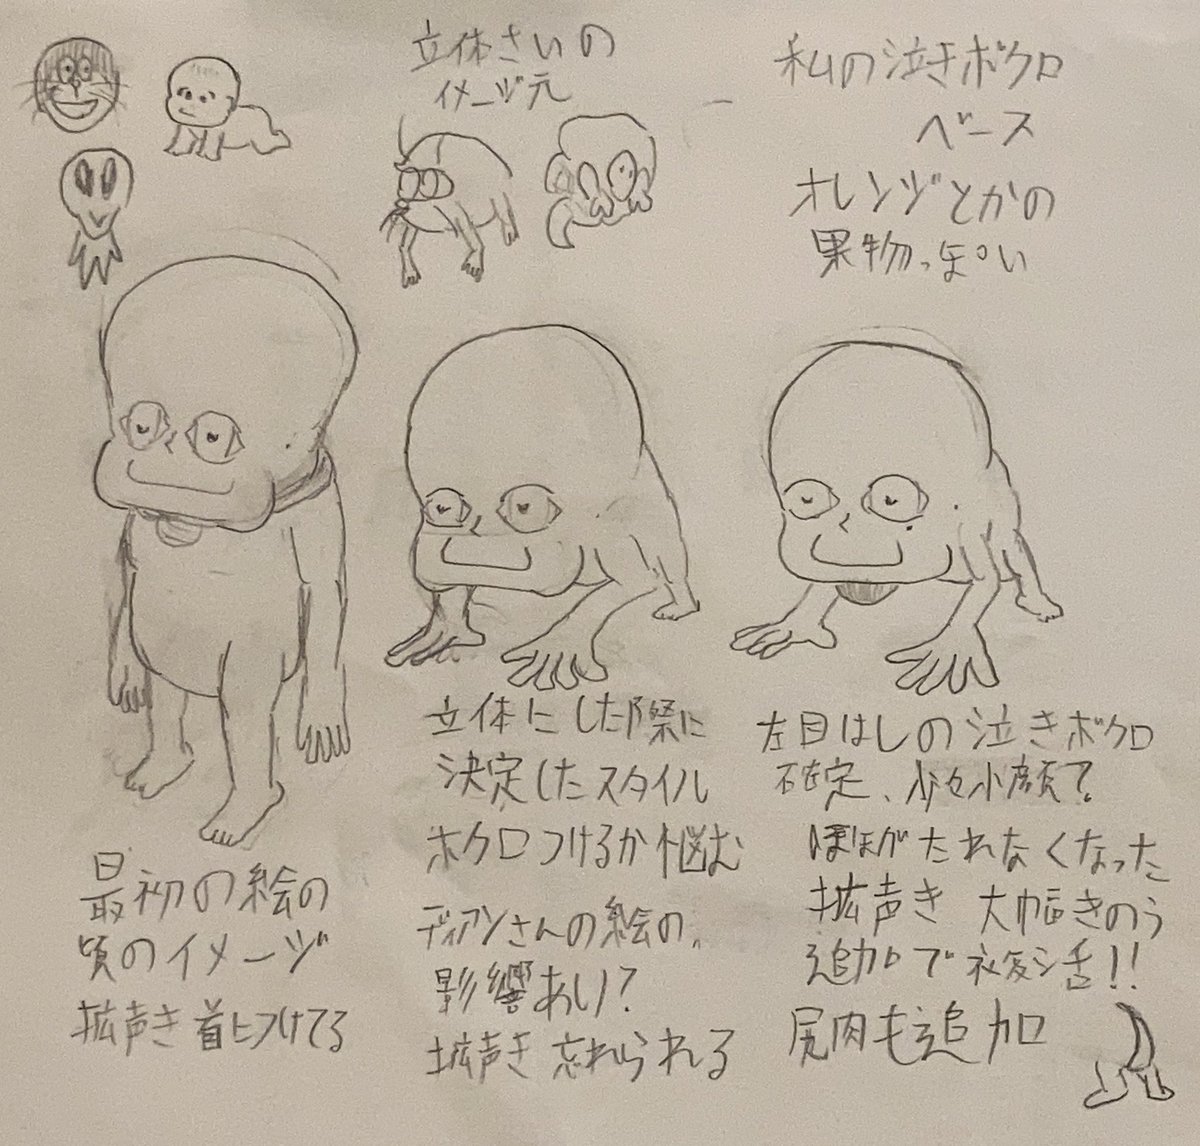 立体さいの
イメーヅ元
私の泣きボクロ
ベース
オレンヅとかの
果物っぽい
最初の絵の
頃のイメーヅ
拡声き首につけてる
立体にした際に
決定したスタイル
ホクロつけるか悩む
ディアンさんの絵の、
影響あり?
拡声き忘れられる
左目はしの泣きボクロ
確定、少々小顔?
ほほがたれなくなった
拡声き 大幅きのう
追加で復活!!
尻肉も追加